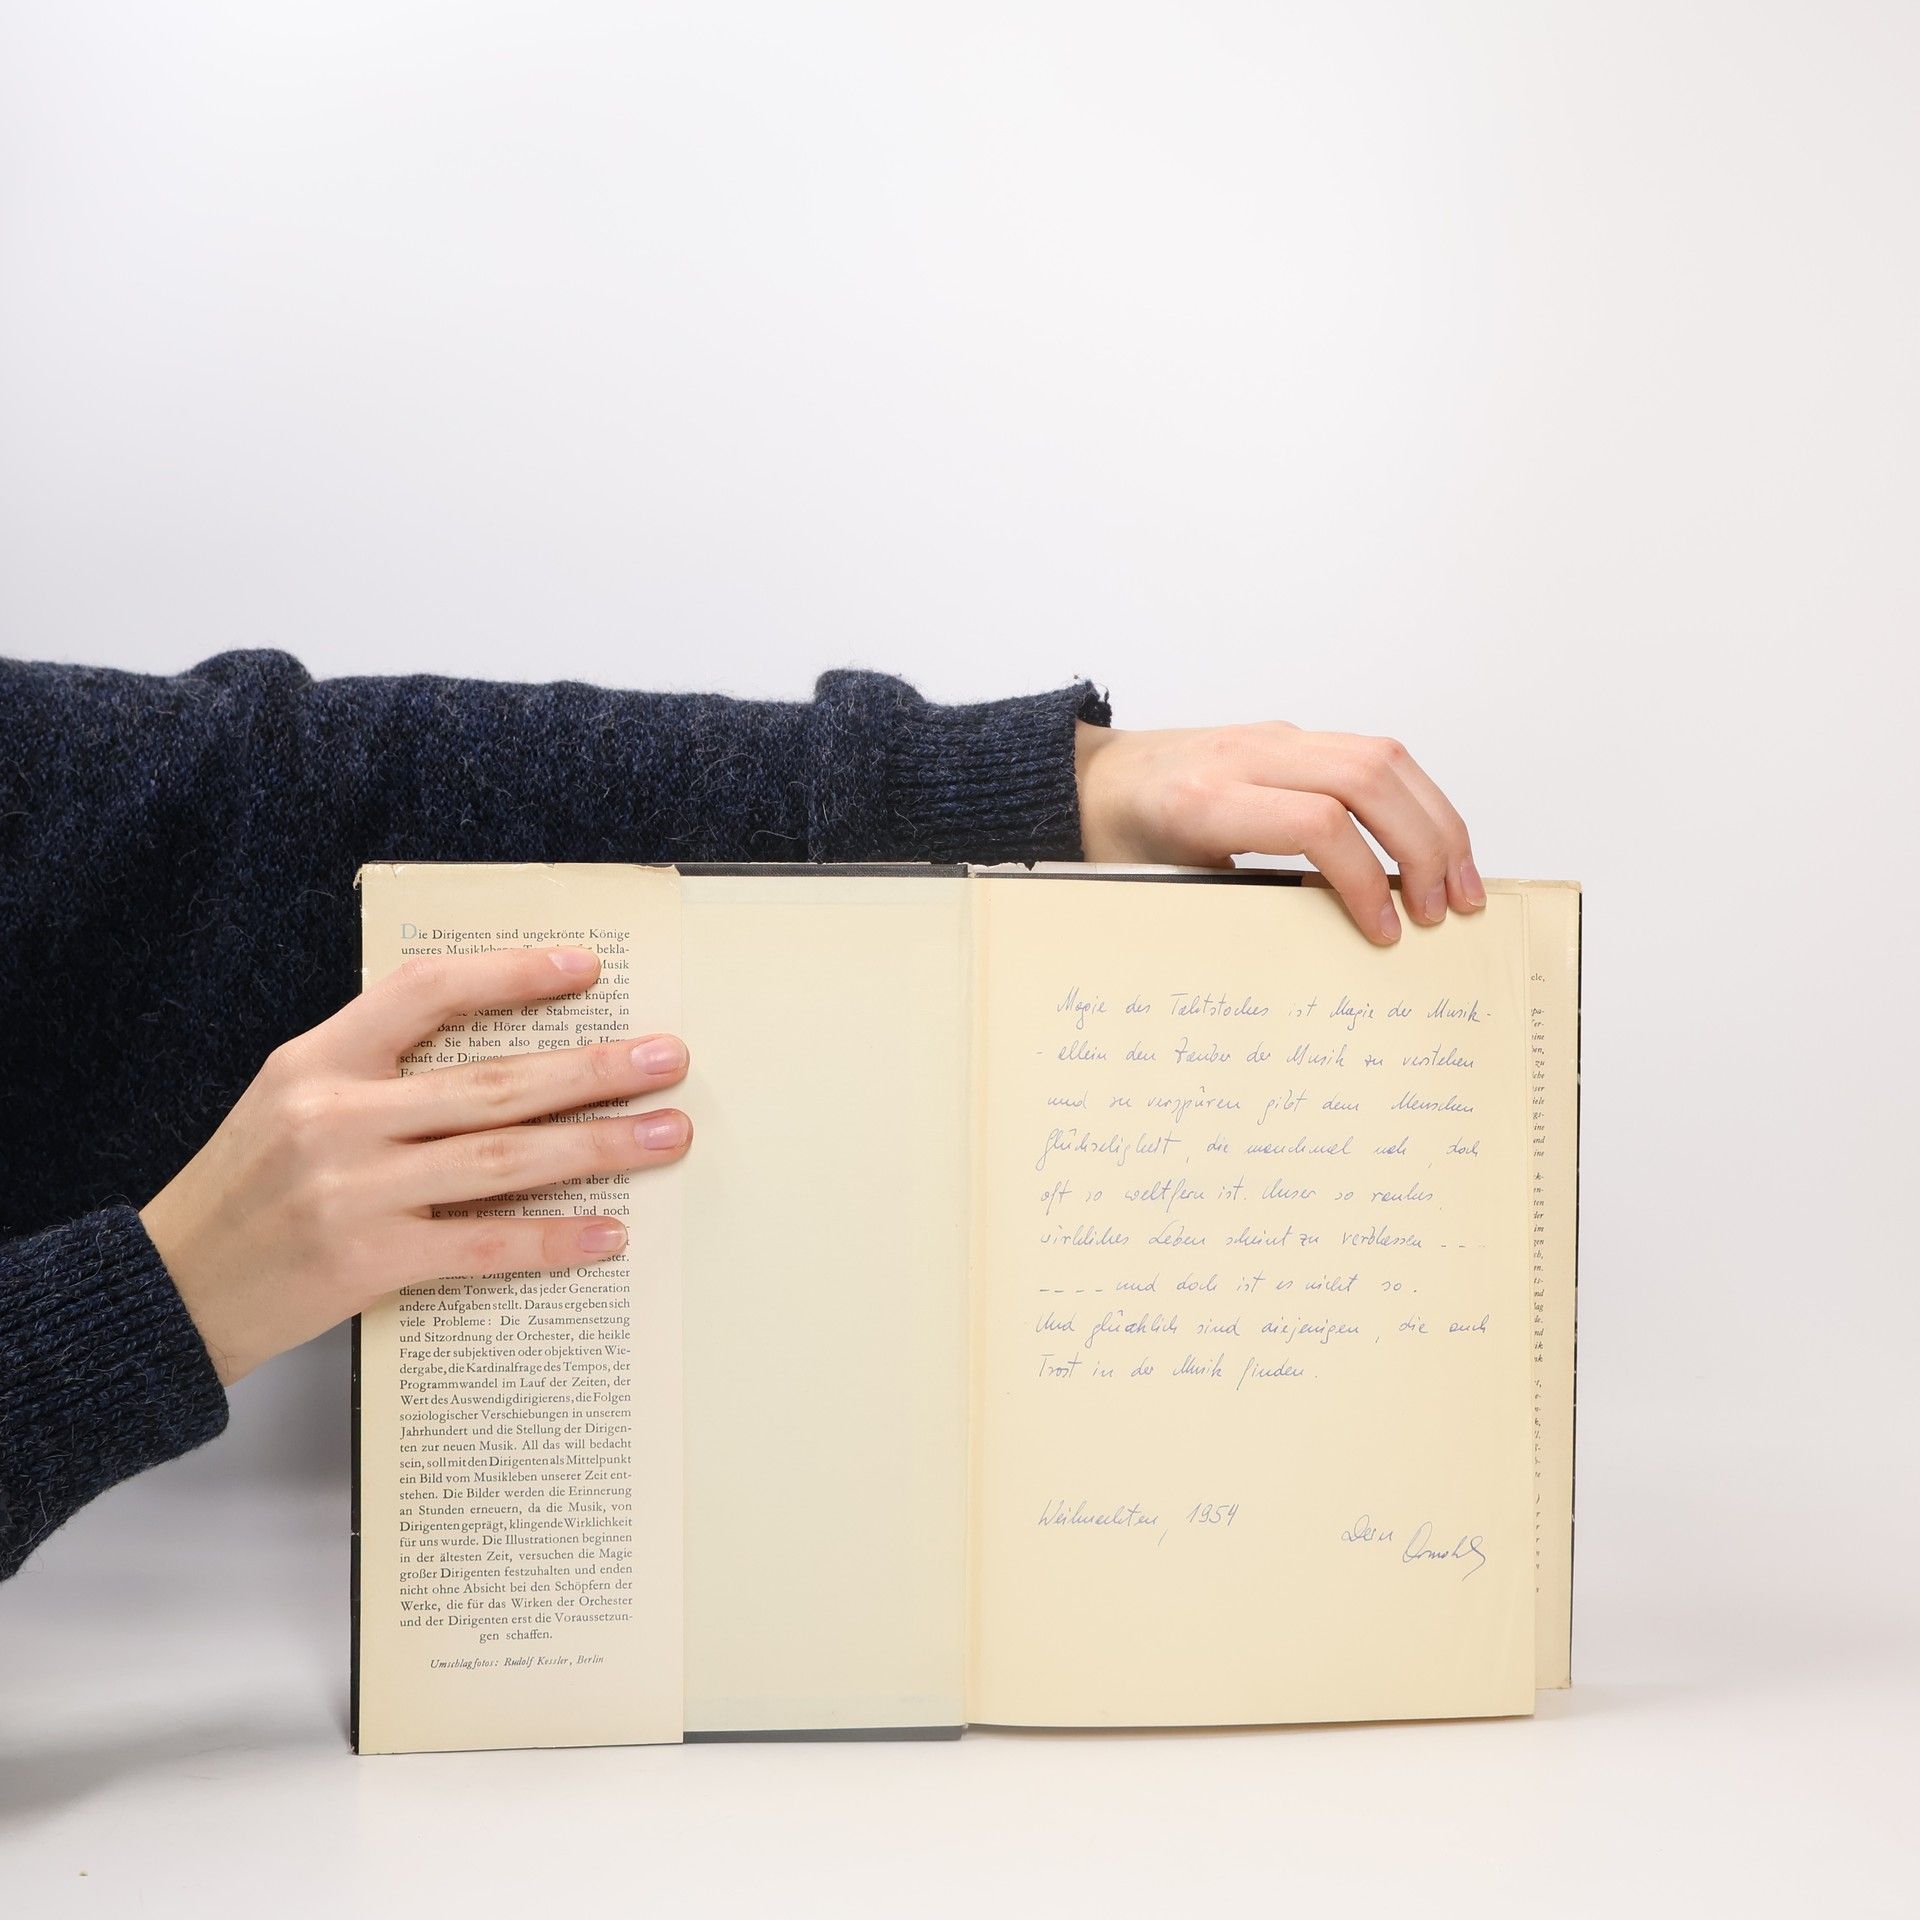 Die Dirigenten sind ungekrönte Könige
unseres bekla-
Musik
die
knüpfen
Namen der Stabmeister, in
Bann die Hörer damals gestanden
Sie haben also gegen die
schaft der
Aber der
Das Musikleben
Um aber die
heute zu verstehen, müssen
von gestern kennen. Und noch
Dirigenten und Orchester
dienen dem Tonwerk, das jeder Generation
andere Aufgaben stellt. Daraus ergeben sich
viele Probleme: Die Zusammensetzung
und Sitzordnung der Orchester, die heikle
Frage der subjektiven oder objektiven Wie-
dergabe, die Kardinalfrage des Tempos, der
Programmwandel im Lauf der Zeiten, der
Wert des Auswendigdirigierens, die Folgen
soziologischer Verschiebungen in unserem
Jahrhundert und die Stellung der Dirigen-
ten zur neuen Musik. All das will bedacht
sein, soll mit den Dirigenten als Mittelpunkt
ein Bild vom Musikleben unserer Zeit ent-
stehen. Die Bilder werden die Erinnerung
an Stunden erneuern, da die Musik, von
Dirigenten geprägt, klingende Wirklichkeit
für uns wurde. Die Illustrationen beginnen
in der ältesten Zeit, versuchen die Magie
großer Dirigenten festzuhalten und enden
nicht ohne Absicht bei den Schöpfern der
Werke, die für das Wirken der Orchester
und der Dirigenten erst die Voraussetzun-
gen schaffen.
Umschlagfotos: Rudolf Kessler, Berlin
Magie des Taktstockes ist Magie der Musik -
- allein den Zauber der Musik zu verstehen
und zu verspüren gibt dem Menschen
Glückseligkeit, die manchmal nah, doch
oft so weltfern ist. Unser so rauhes,
wirkliches Leben scheint zu verblassen - - -
- - - - und doch ist es nicht so.
Und glücklich sind diejenigen, die auch
Trost in der Musik finden.
Weihnachten, 1954
Dein